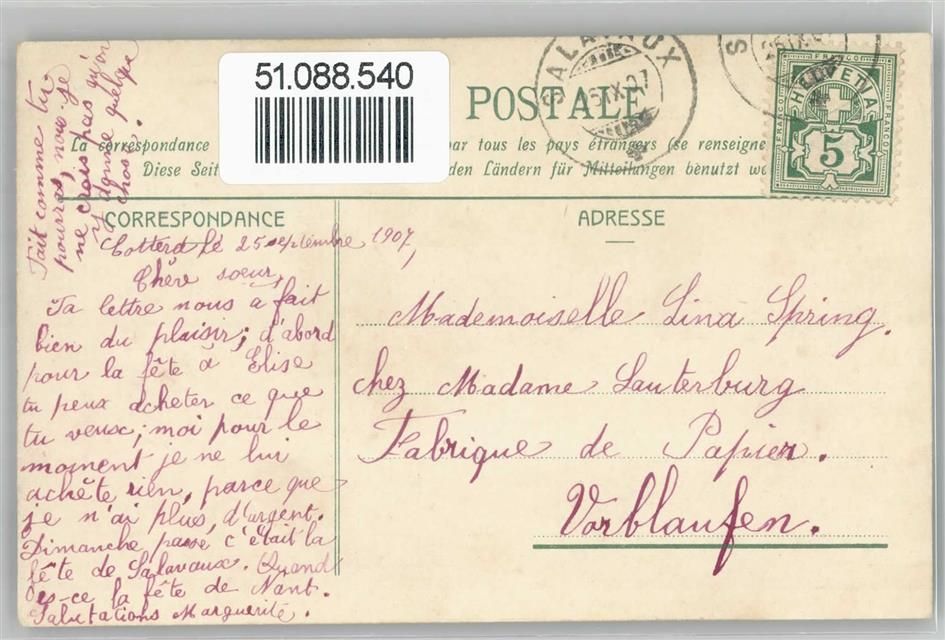 51.088.540
POSTALE
La correspondance par tous les pays étrangers (se renseigne
Diese Seit den Ländern für Mitteilungen benützt
SALAVAUX
HELVETIA
5
FRANCO
CORRESPONDANCE
ADRESSE
Cotterd le 25 septembre 1907,
Chère soeur,
Ta lettre nous a fait
bien du plaisir; d'abord
pour la fête à Elise
tu peux acheter ce que
tu veux; moi pour le
moment je ne lui
achète rien, parce que
je n'ai plus, d'argent.
Dimanche passé c'était la
fête de Salavaux. Quand
es-ce la fête de Nant.
Salutations Marguerite.
Fait comme tu
pourras, nous je
ne crois pas qu'on
y donne quelque
chose.
Mademoiselle Lina Spring.
chez Madame Lauterburg
Fabrique de Papier.
Worblaufen.